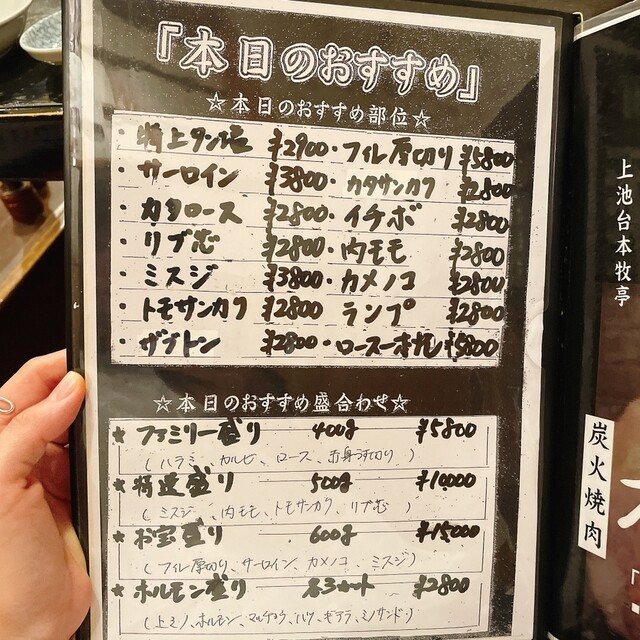 『本日のおすすめ』
☆本日のおすすめ部位☆
・特上タン塩 ¥2900・フィレ厚切り ¥5800
・サーロイン ¥3800・カタサンカク ¥2800
・カタロース ¥2800・イチボ ¥2800
・リブ芯 ¥2800・内モモ ¥2800
・ミスジ ¥3800・カメノコ ¥2800
・トモサンカク ¥2800・ランプ ¥2800
・ザブトン ¥2800・ロース一本焼 ¥5800
☆本日のおすすめ盛合わせ☆
★ファミリー盛り 400g ¥5800
(ハラミ、カルビ、ロース、赤身うす切り)
★特選盛り 500g ¥10000
(ミスジ、内モモ、トモサンカク、リブ芯)
★お宝盛り 600g ¥15000
(フィレ厚切り、サーロイン、カメノコ、ミスジ)
★ホルモン盛り 各3カット ¥2800
(上ミノ、ホルモン、マルチョウ、ハツ、ギアラ、ミノサンド)
上池台本牧亭
炭火焼肉